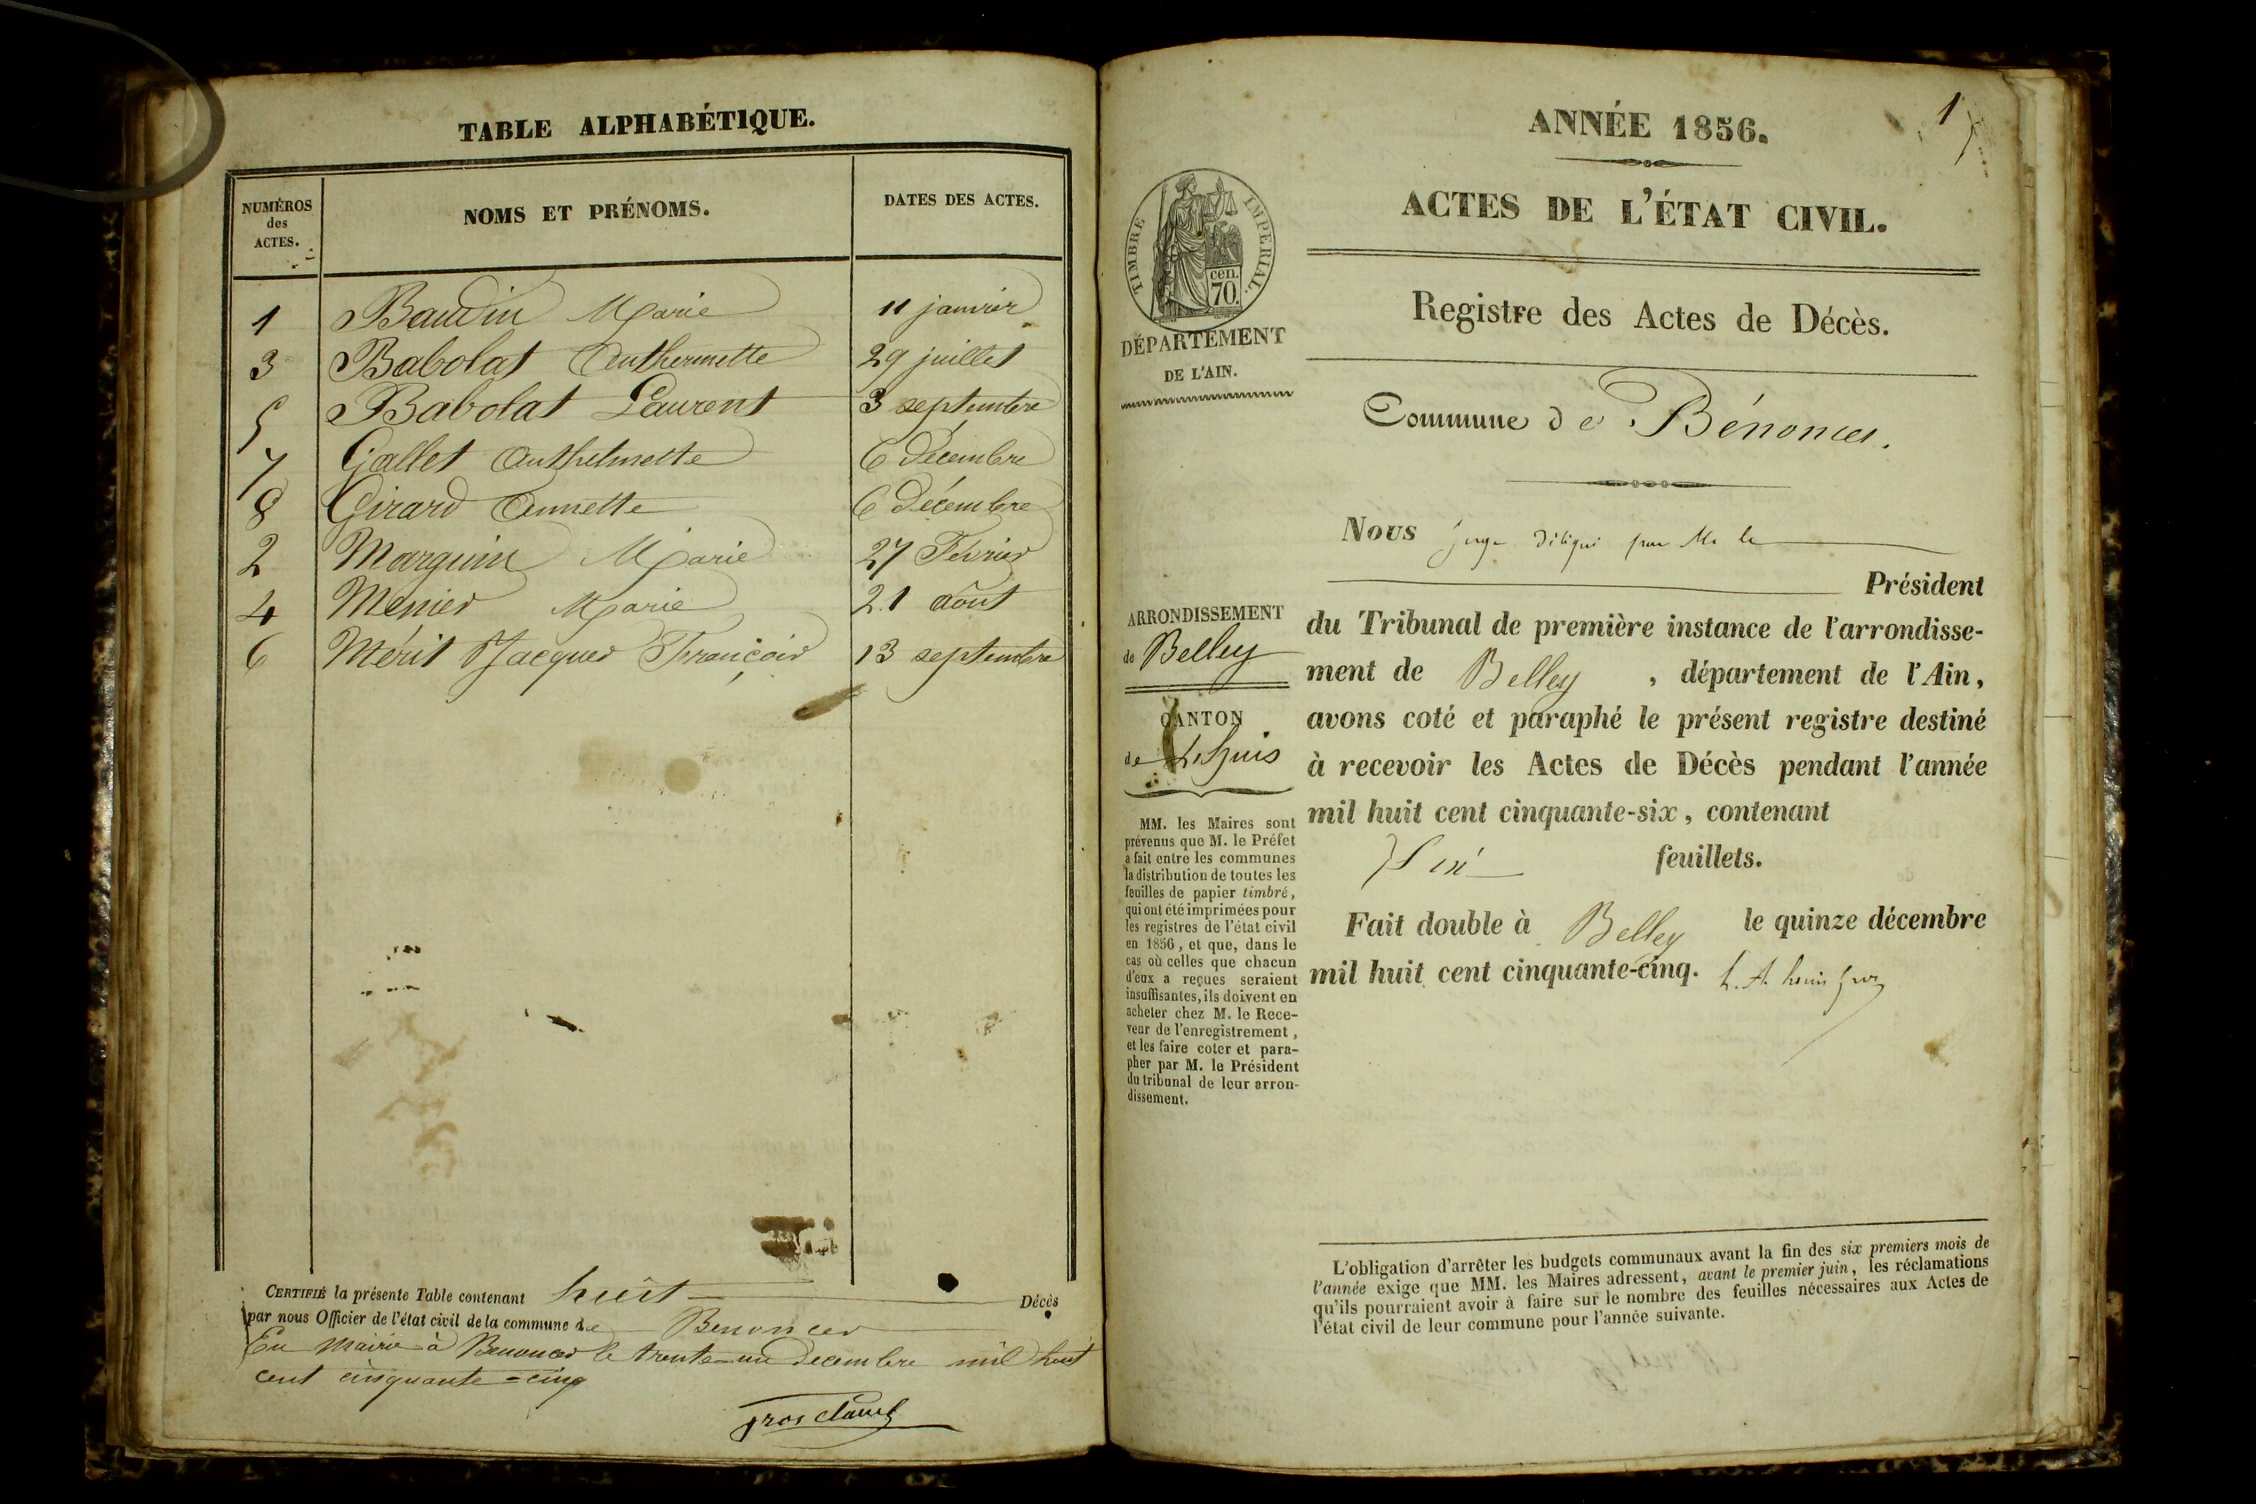 TABLE ALPHABÉTIQUE.
NUMÉROS des ACTES. NOMS ET PRÉNOMS. DATES DES ACTES.
1 Baudin Marie 11 janvier
3 Babolat Anthermette 29 juillet
5 Babolat Laurent 3 septembre
7 Gallet Anthelmette 6 Décembre
8 Girard Annette 6 Décembre
2 Marguin Marie 27 Fevrier
4 Menier Marie 21 aôut
6 Mérit Jacques François 13 septembre
CERTIFIÉ la présente Table contenant huit Décès
par nous Officier de l'état civil de la commune de Benonces
En Mairie à Benonces le trente-un decembre mil huit
cent cinquante-cinq
Grosclaude
1
ANNÉE 1856.
ACTES DE L'ÉTAT CIVIL.
TIMBRE IMPERIAL.
cen.
70.
DÉPARTEMENT
DE L'AIN.
Registre des Actes de Décès.
Commune de Bénonces.
Nous juge délégué par Mr le
Président
du Tribunal de première instance de l'arrondisse-
ment de Belley , département de l'Ain,
avons coté et paraphé le présent registre destiné
à recevoir les Actes de Décès pendant l'année
mil huit cent cinquante-six, contenant
Six feuillets.
Fait double à Belley le quinze décembre
mil huit cent cinquante-cinq.
ARRONDISSEMENT
de Belley
CANTON
de Lhuis
MM. les Maires sont
prévenus que M. le Préfet
a fait entre les communes
la distribution de toutes les
feuilles de papier timbré,
qui ont été imprimées pour
les registres de l'état civil
en 1856, et que, dans le
cas où celles que chacun
d'eux a reçues seraient
insuffisantes, ils doivent en
acheter chez M. le Rece-
veur de l'enregistrement,
et les faire coter et para-
pher par M. le Président
du tribunal de leur arron-
dissement.
L'obligation d'arrêter les budgets communaux avant la fin des six premiers mois de
l'année exige que MM. les Maires adressent, avant le premier juin, les réclamations
qu'ils pourraient avoir à faire sur le nombre des feuilles nécessaires aux Actes de
l'état civil de leur commune pour l'année suivante.